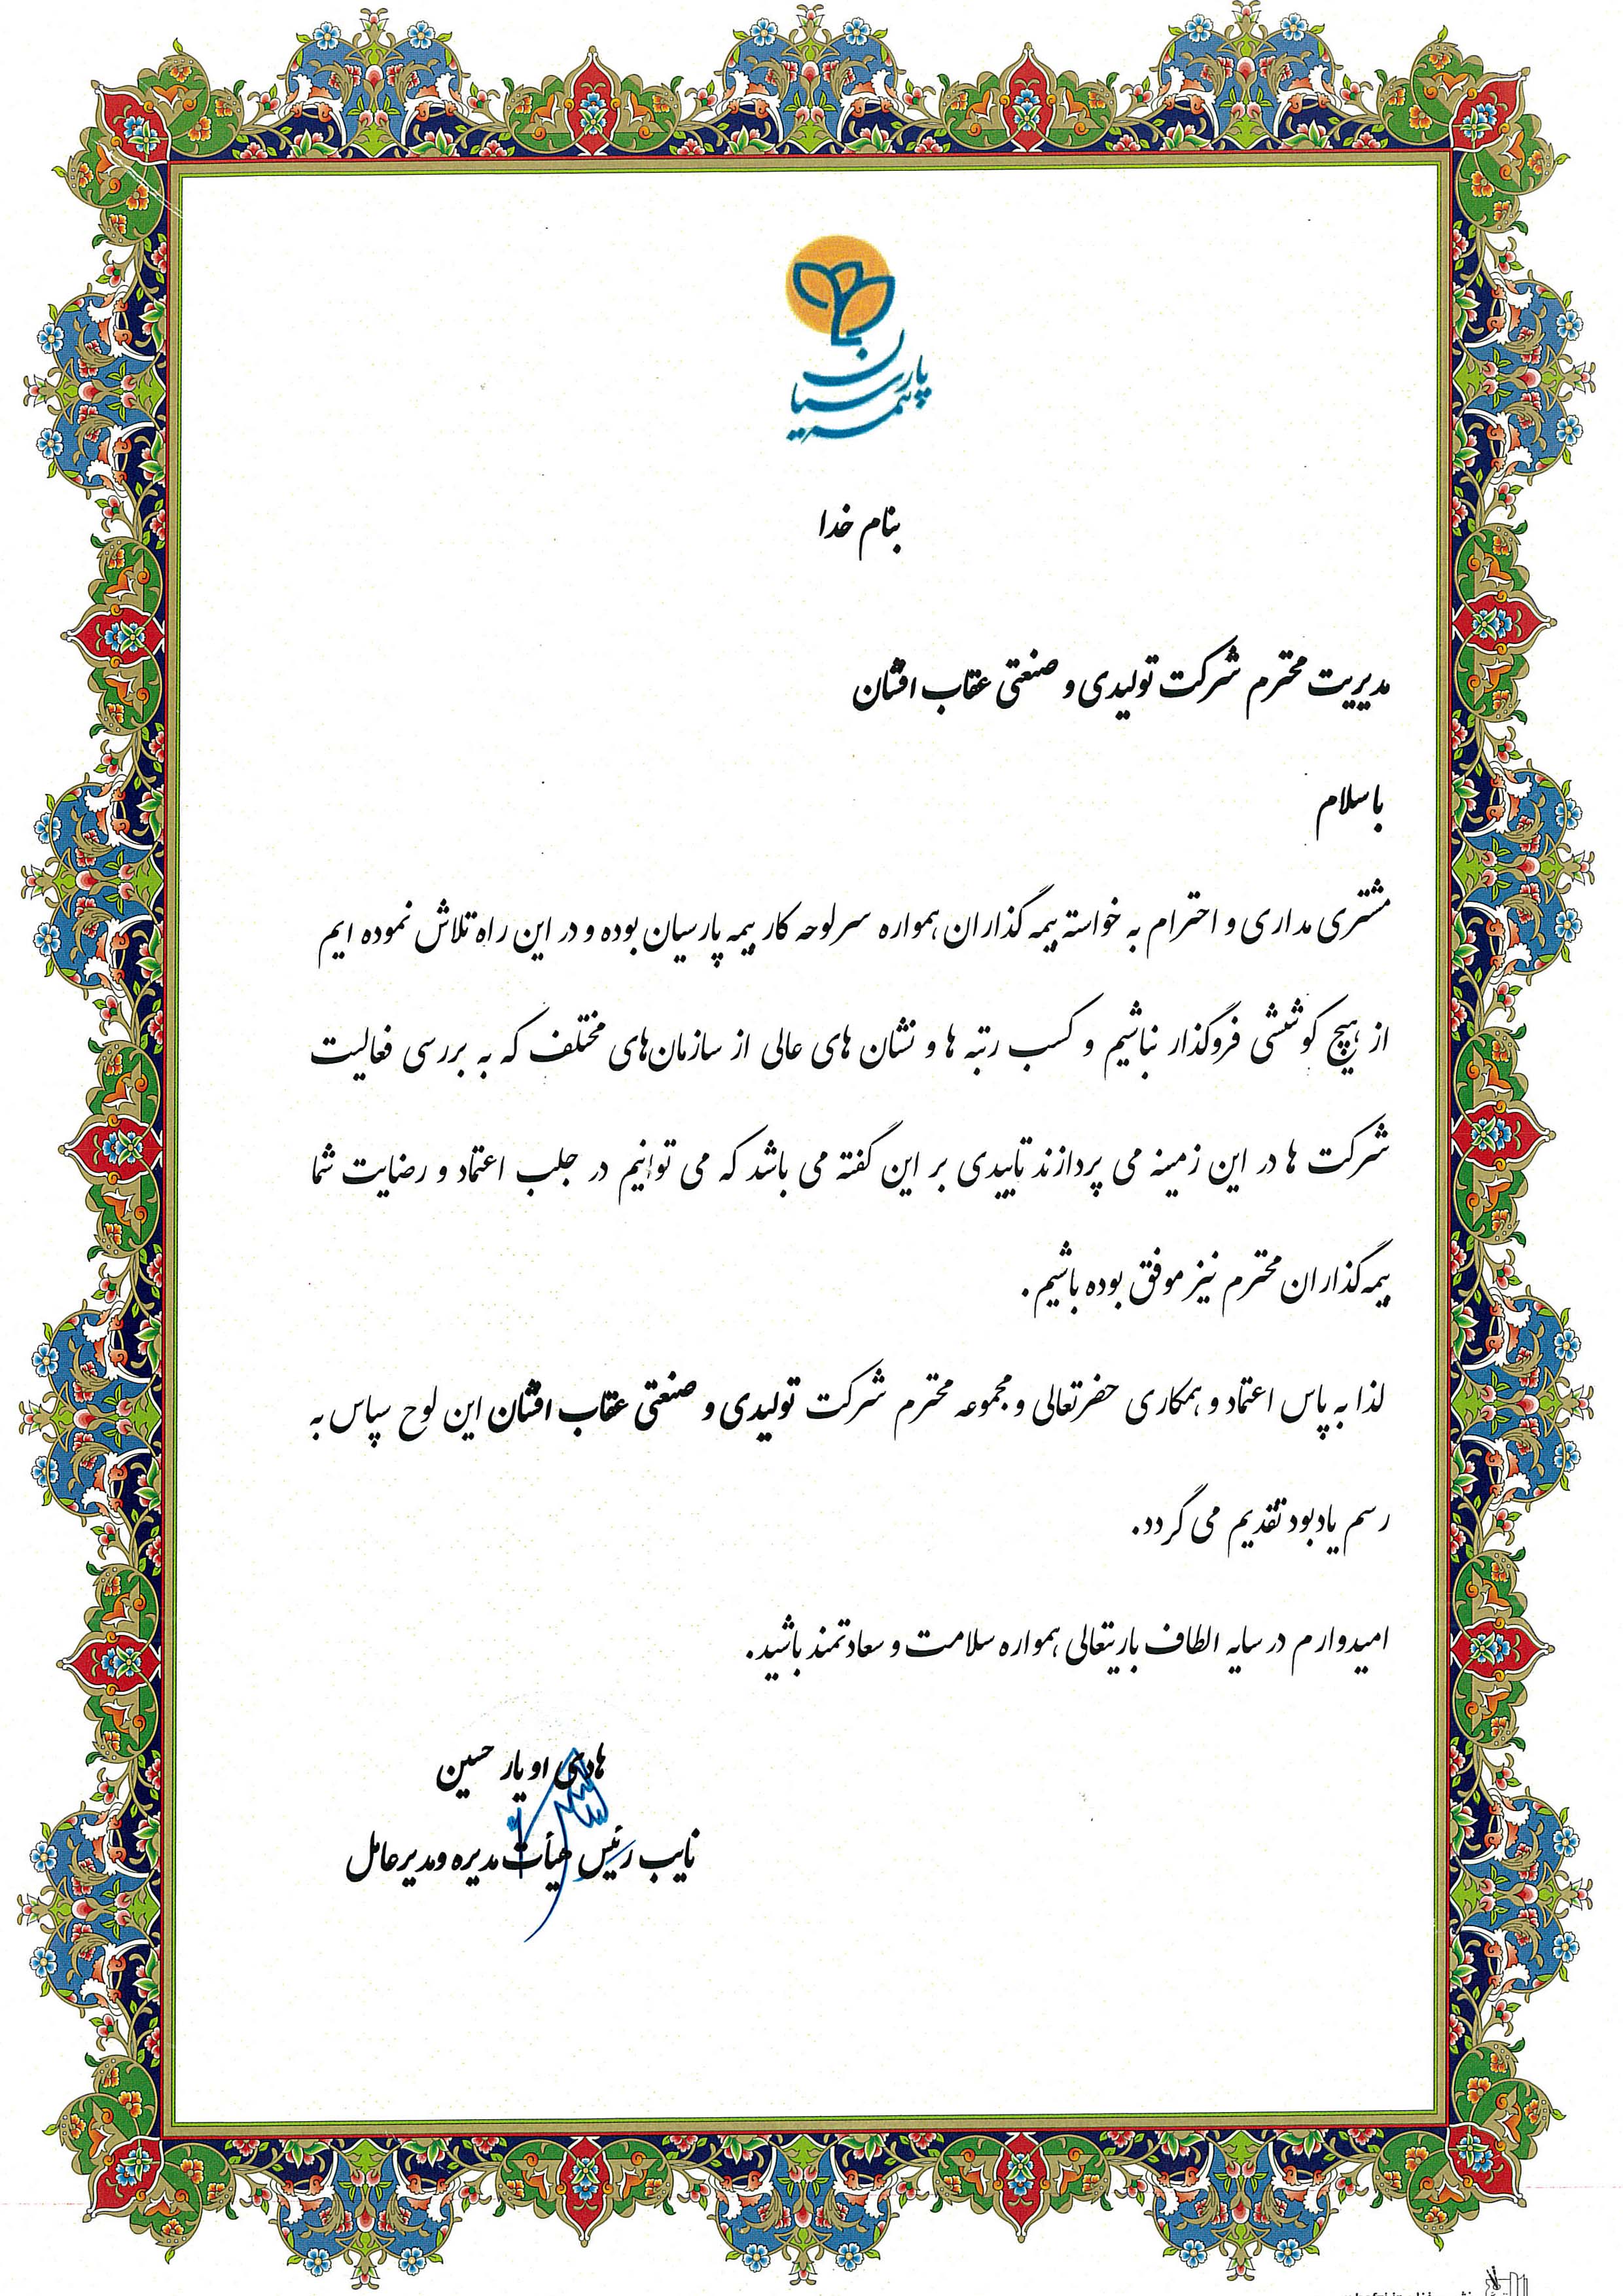 بیمه پارسیان
بنام خدا
مدیریت محترم شرکت تولیدی و صنعتی عقاب افشان
باسلام
مشتری مداری و احترام به خواسته بیمه گذاران همواره سرلوحه کار بیمه پارسیان بوده و در این راه تلاش نموده ایم
از هیچ کوششی فروگذار نباشیم و کسب رتبه ها و نشان های عالی از سازمان‌های مختلف که به بررسی فعالیت
شرکت ها در این زمینه می پردازند تاییدی بر این گفته می باشد که می توانیم در جلب اعتماد و رضایت شما
بیمه گذاران محترم نیز موفق بوده باشیم.
لذا به پاس اعتماد و همکاری حضرتعالی و مجموعه محترم شرکت تولیدی و صنعتی عقاب افشان این لوح سپاس به
رسم یادبود تقدیم می گردد.
امیدوارم در سایه الطاف باریتعالی همواره سلامت و سعادتمند باشید.
هادی اویار حسین
نایب رئیس هیأت مدیره ومدیرعامل